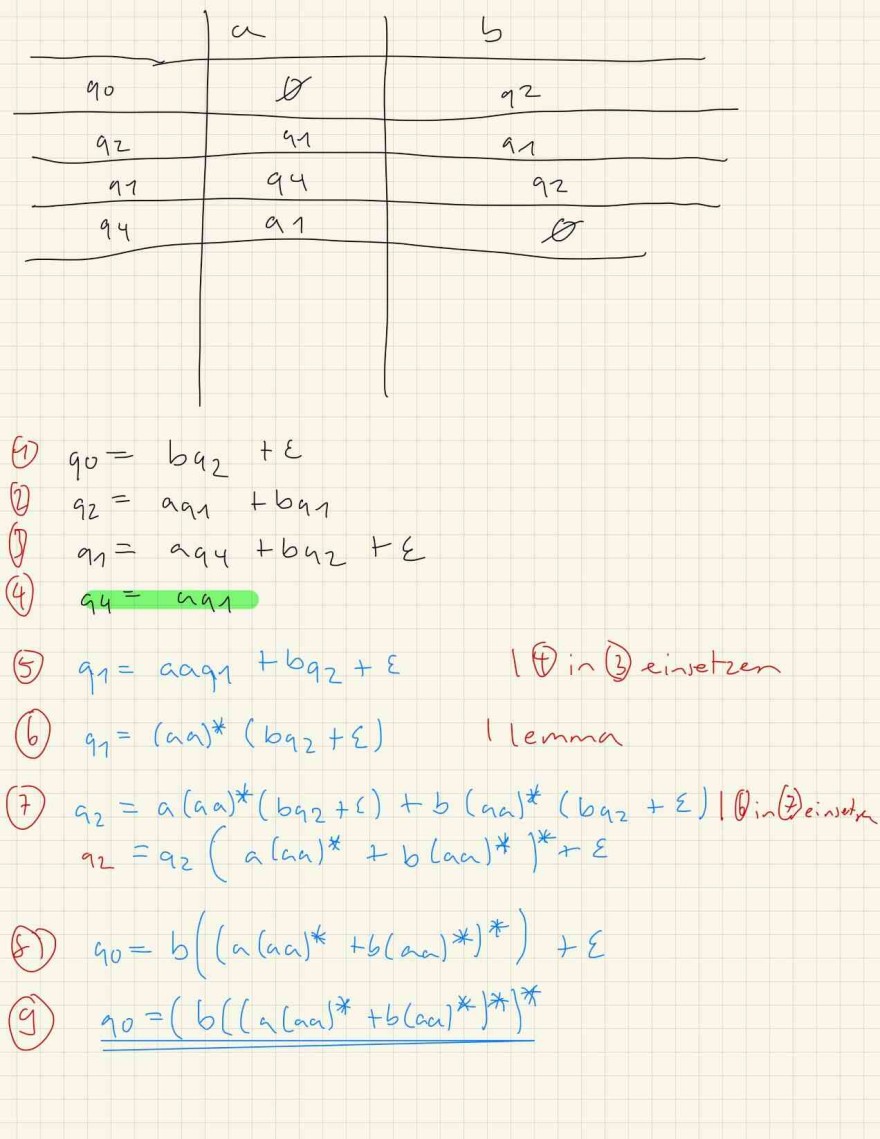 a b
q0 ∅ q2
q2 q1 q1
q1 q4 q2
q4 q1 ∅
① q0 = bq2 + ε
② q2 = aq1 + bq1
③ q1 = aq4 + bq2 + ε
④ q4 = aq1
⑤ q1 = aaq1 + bq2 + ε | ④ in ③ einsetzen
⑥ q1 = (aa)* (bq2 + ε) | lemma
⑦ q2 = a(aa)*(bq2 + ε) + b(aa)* (bq2 + ε) | ⑥ in ② einsetzen
q2 = q2 ( a(aa)* + b(aa)* )* + ε
⑧ q0 = b((a(aa)* + b(aa)*)*) + ε
⑨ q0 = (b((a(aa)* + b(aa)*)*)*